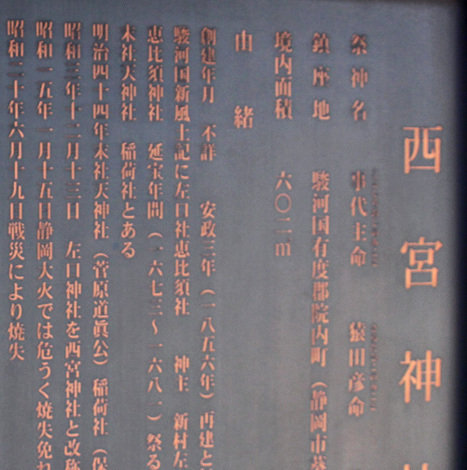 西宮神
祭神名 事代主命 猿田彦命
鎮座地 駿河国有度郡院内町（静岡市葵
境内面積 六〇二㎡
由緒
創建年月 不詳 安政三年（一八五六年）再建と
駿河国新風土記に左口社恵比須社 神主 新村左
恵比須神社 延宝年間（一六七三～一六八一）祭る
末社天神社 稲荷社とある
明治四十四年末社天神社（菅原道眞公）稲荷社（保
昭和三年十二月十三日 左口神社を西宮神社と改称
昭和一五年一月十五日静岡大火では危うく焼失免れ
昭和二十年六月十九日戦災により焼失